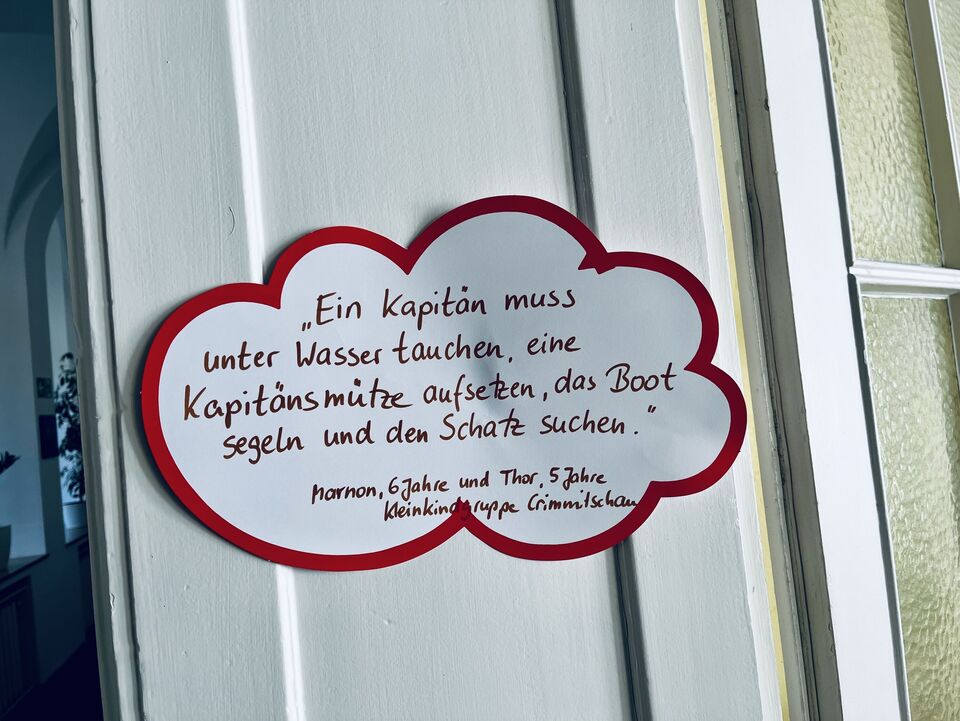 „Ein Kapitän muss
unter Wasser tauchen, eine
Kapitänsmütze aufsetzen, das Boot
segeln und den Schatz suchen."
Marnon, 6 Jahre und Thor, 5 Jahre
Kleinkindgruppe Crimmitschau